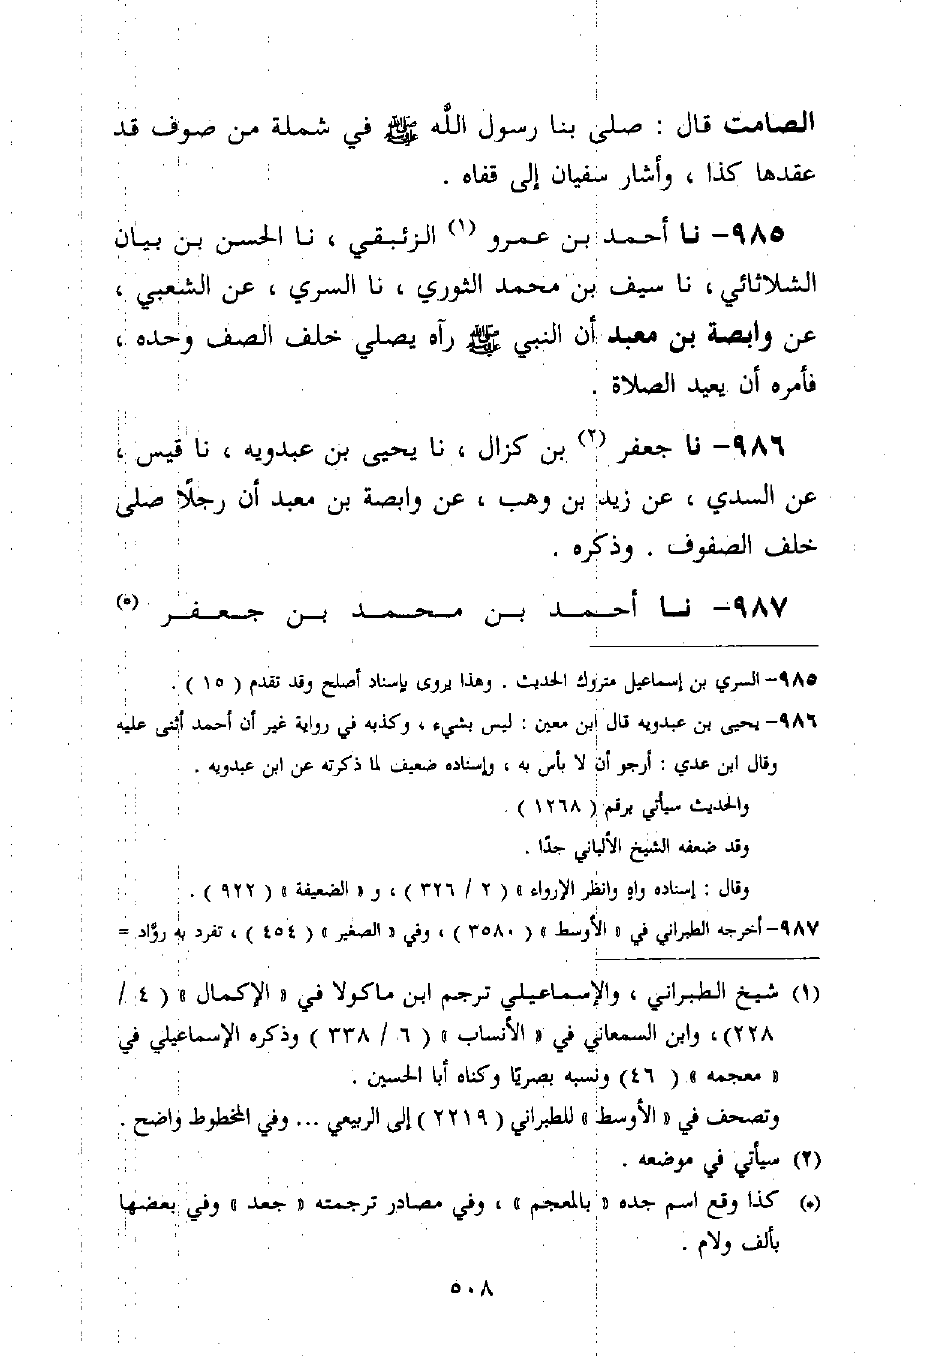 الصامت قال : صلى بنا رسول الله ﷺ في شملة من صوف قد
عقدها كذا ، وأشار سفيان إلى قفاه .
٩٨٥- نا أحمد بن عمرو (١) الزئبقي ، نا الحسن بن بيان
الشلاثائي ، نا سيف بن محمد الثوري ، نا السري ، عن الشعبي ،
عن وابصة بن معبد أن النبي ﷺ رآه يصلي خلف الصف وحده ،
فأمره أن يعيد الصلاة .
٩٨٦- نا جعفر (٢) بن كزال ، نا يحيى بن عبدويه ، نا قيس ،
عن السدي ، عن زيد بن وهب ، عن وابصة بن معبد أن رجلًا صلى
خلف الصفوف . وذكره .
٩٨٧- نا أحمد بن محمد بن جعفر (٥)
٩٨٥- السري بن إسماعيل متروك الحديث . وهذا يروى بإسناد أصلح وقد تقدم ( ١٥ ) .
٩٨٦- يحيى بن عبدويه قال ابن معين : ليس بشيء ، وكذبه في رواية غير أن أحمد أثنى عليه
وقال ابن عدي : أرجو أن لا بأس به ، وإسناده ضعيف لما ذكرته عن ابن عبدويه .
والحديث سيأتي برقم ( ١٢٦٨ ) .
وقد ضعفه الشيخ الألباني جدًا .
وقال : إسناده واهٍ وانظر الإرواء » ( ٢ / ٣٢٦ ) ، و « الضعيفة » ( ٩٢٢ ) .
٩٨٧- أخرجه الطبراني في « الأوسط » ( ٣٥٨٠ ) ، وفي « الصغير » ( ٤٥٤ ) ، تفرد به روَّاد =
(١) شيخ الطبراني ، والإسماعيلي ترجم ابن ماكولا في « الإكمال » ( ٤ /
٢٢٨) ، وابن السمعاني في « الأنساب » ( ٦ / ٣٣٨ ) وذكره الإسماعيلي في
« معجمه » ( ٤٦) ونسبه بصريًا وكناه أبا الحسين .
وتصحف في « الأوسط » للطبراني ( ٢٢١٩ ) إلى الربيعي ... وفي المخطوط واضح .
(٢) سيأتي في موضعه .
(٥) كذا وقع اسم جده « بالمعجم » ، وفي مصادر ترجمته « جعد » وفي بعضها
بألف ولام .
٥٠٨